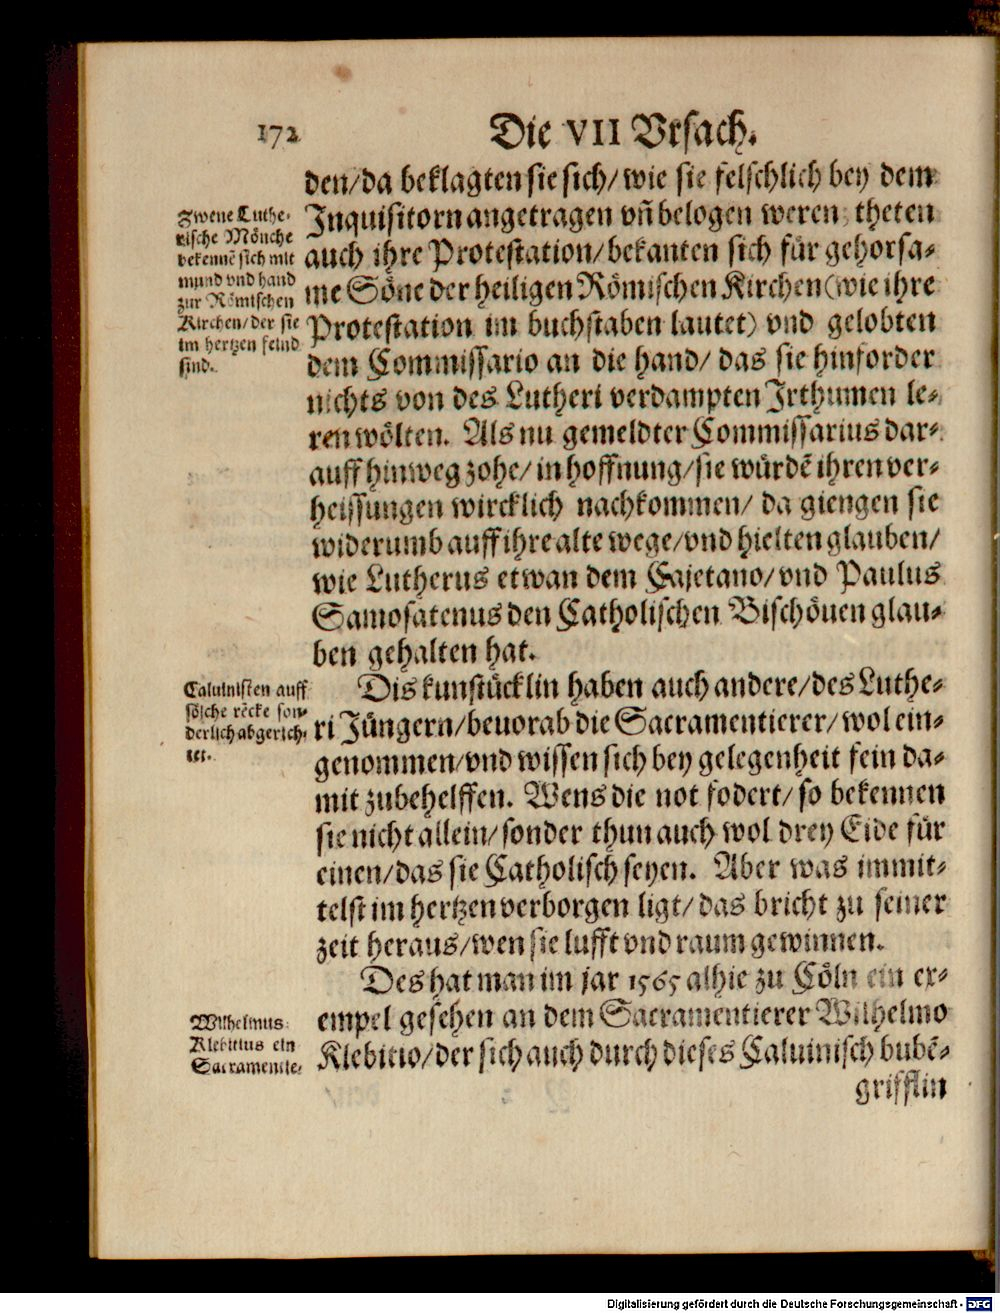 172
Die VII Vrsach.
den/da beklagten sie sich/wie sie felschlich bey dem
Inquisitorn angetragen vñ belogen weren, theten
auch ihre Protestation/bekanten sich für gehorsa-
me Söne der heiligen Römischen Kirchen(wie ihre
Protestation im buchstaben lautet) vnd gelobten
dem Commissario an die hand/ das sie hinforder
nichts von des Lutheri verdampten Irthumen le-
ren wölten. Als nu gemeldter Commissarius dar-
auff hinweg zohe/ in hoffnung/sie würdẽ ihren ver-
heissungen wircklich nachkommen/ da giengen sie
widerumb auff ihre alte wege/vnd hielten glauben/
wie Lutherus etwan dem Cajetano/vnd Paulus
Samosatenus den Catholischen Bischöuen glau-
ben gehalten hat.
Zwene Luthe-
rische Mönche
bekennẽ sich mit
mund vnd hand
zur Römischen
Kirchen/der sie
im hertzen feind
sind.
Dis kunstücklin haben auch andere/des Luthe-
ri Jüngern/beuorab die Sacramentierer/wol ein-
genommen/vnd wissen sich bey gelegenheit fein da-
mit zubehelffen. Wens die not fodert/ so bekennen
sie nicht allein/sonder thun auch wol drey Eide für
einen/das sie Catholisch seyen. Aber was immit-
telst im hertzen verborgen ligt/das bricht zu seiner
zeit heraus/wen sie lufft vnd raum gewinnen.
Caluinisten auff
sölche rẽcke son-
derlich abgerich-
tet.
Des hat man im jar 1565 alhie zu Cöln ein ex-
empel gesehen an dem Sacramentierer Wilhelmo
Klebitio/der sich auch durch dieses Caluinisch bubẽ-
grifflin
Wilhelmus
Klebitius ein
Sacramentie-
Digitalisierung gefördert durch die Deutsche Forschungsgemeinschaft - DFG